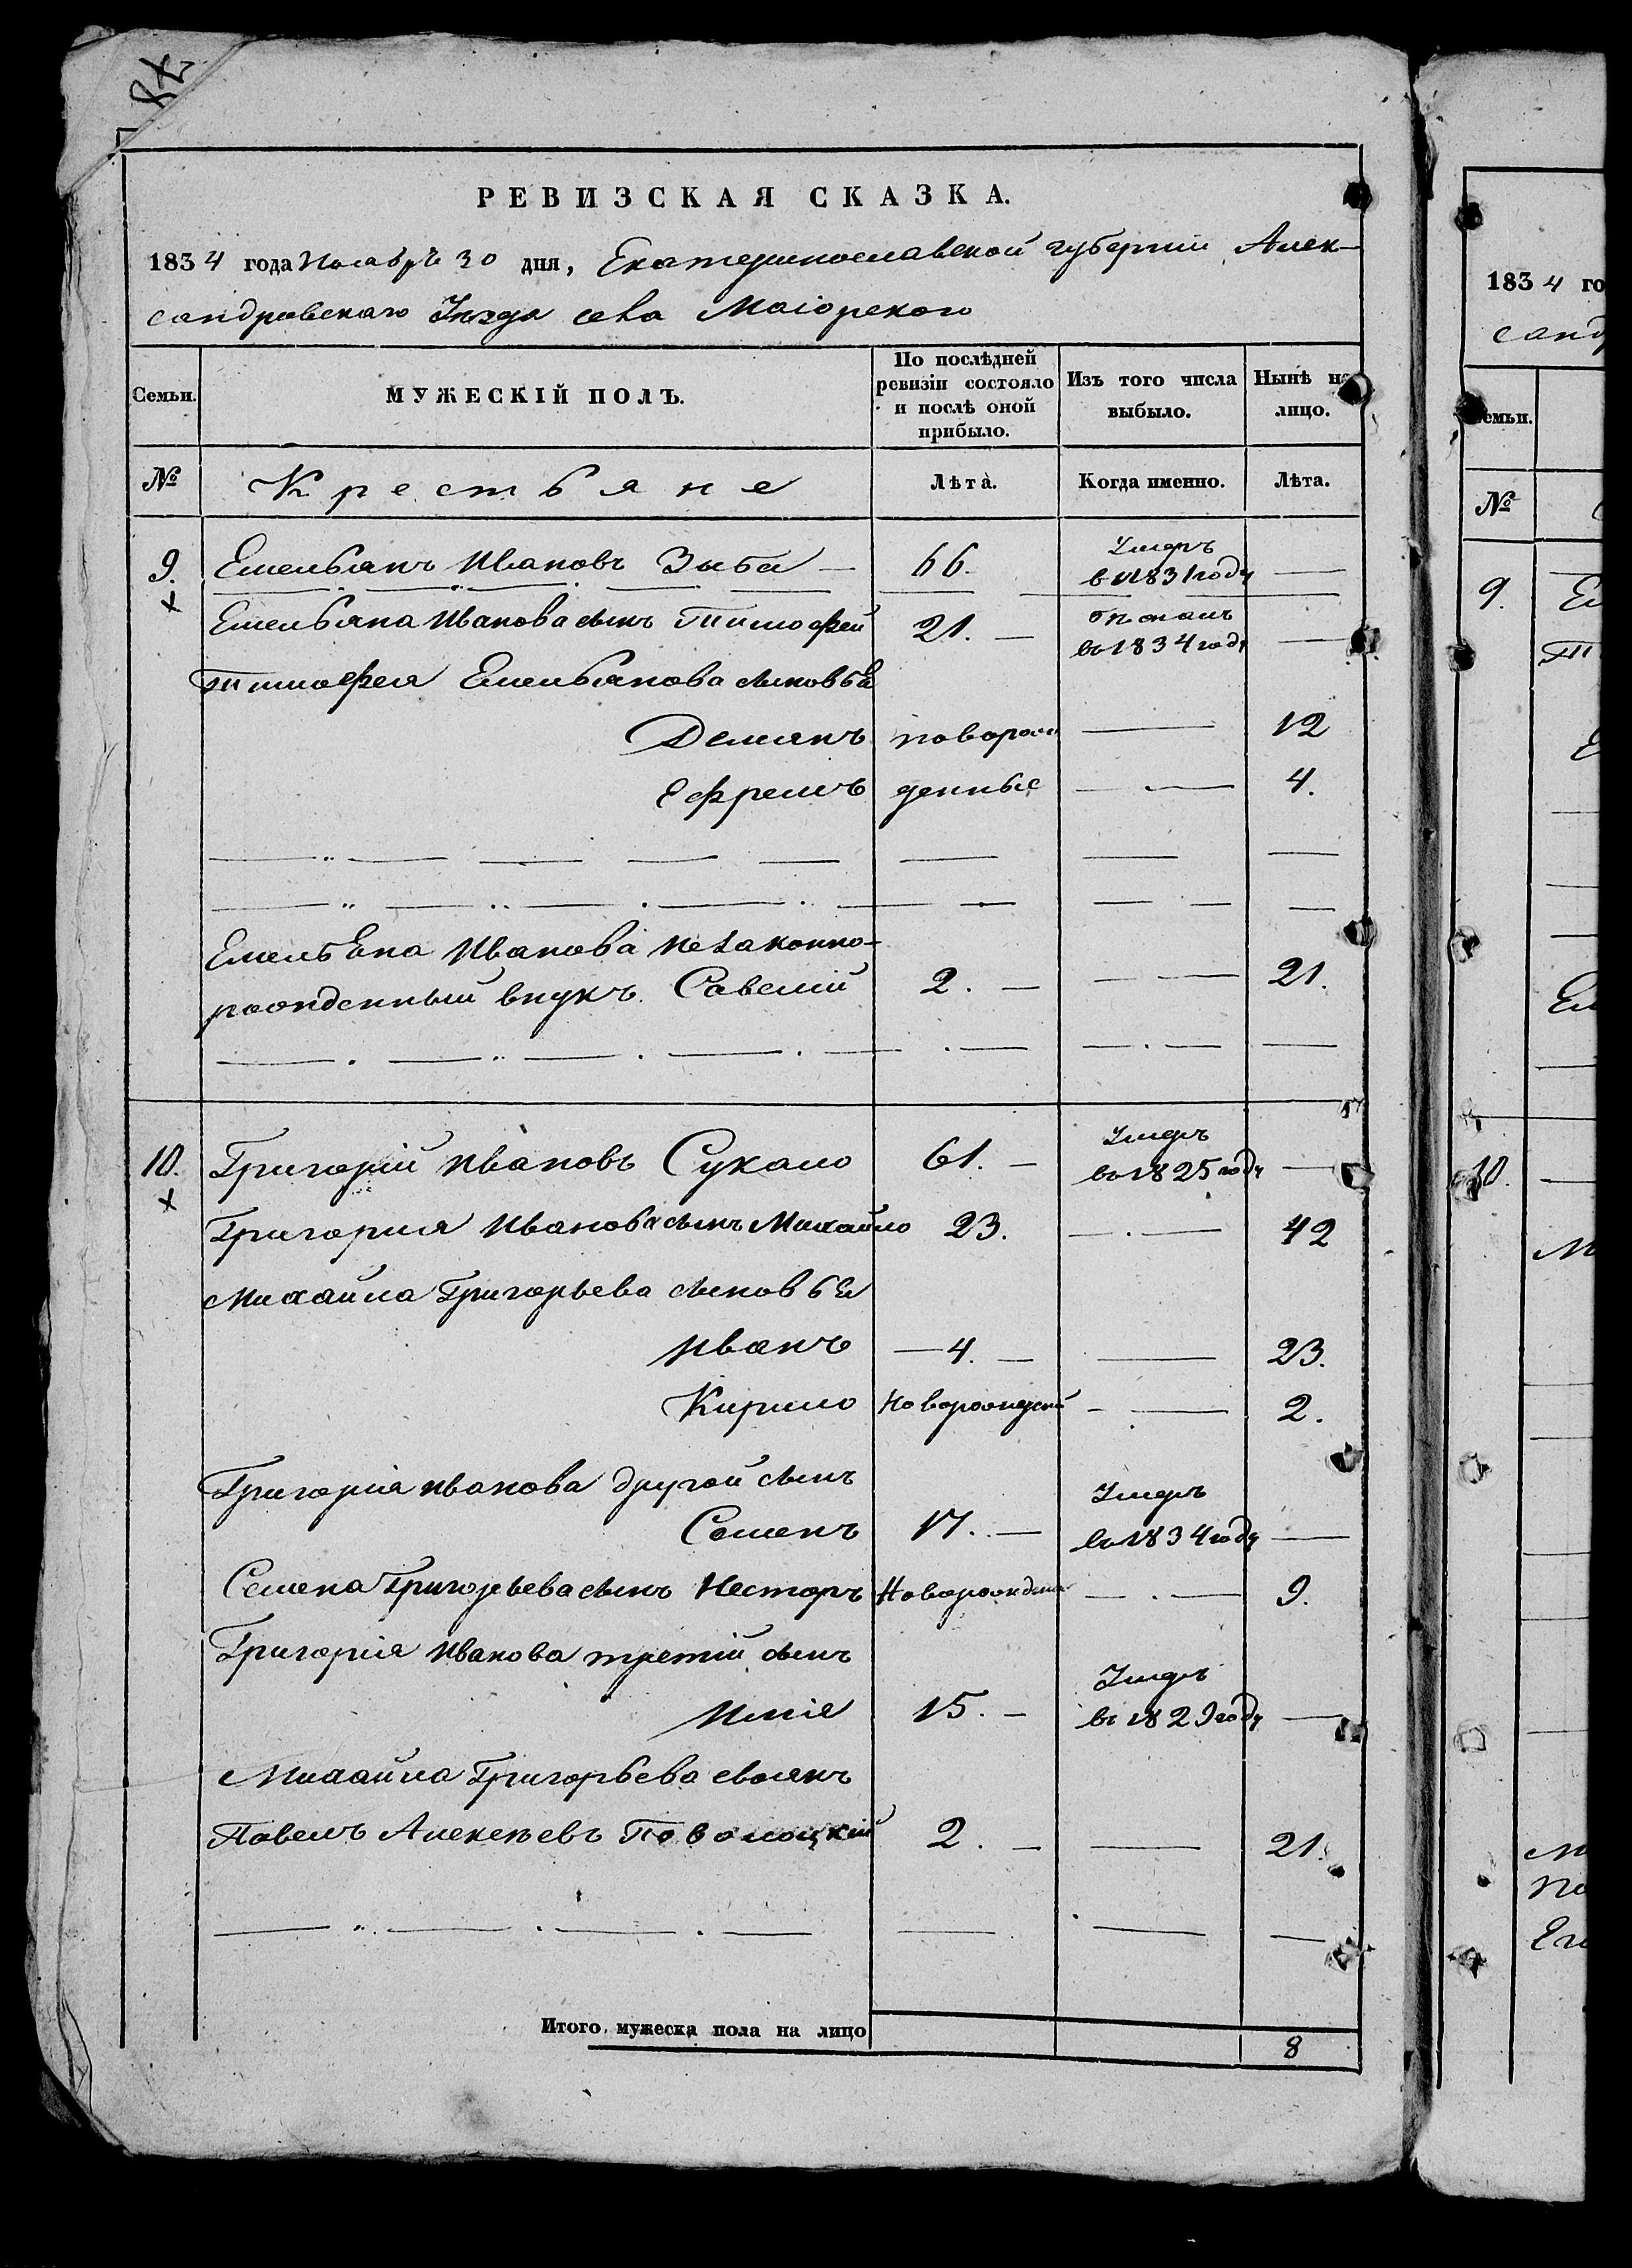 РЕВИЗСКАЯ СКАЗКА.
1834 года Ноября 30 дня, Екатеринославской губернии Алек-
сандровскаго Уезда села Маіорскаго
Семьи.
МУЖЕСКІЙ ПОЛЪ.
По послѣдней ревизіи состояло и послѣ оной прибыло.
Изъ того числа выбыло.
Нынѣ на лицо.
№ Крестьяне Лѣта. Когда именно. Лѣта.
9. Емельянъ Ивановъ Зыба — 66. Умеръ в 1831 году —
Емельяна Иванова сынъ Тимофей 21. — въ 1834 году —
Тимофея Емельянова сыновья
Демянъ новорож — 12
Ефремъ денные — 4.
Емельяна Иванова незаконно-
рожденный внукъ Савелий 2. — — 21.
10. Григорій Ивановъ Сукало 61. — Умеръ въ 1825 году —
Григория Иванова сынъ Михайло 23. — 42
Михайла Григорьева сыновья
Иванъ — 4. — — 23.
Кирило Новорожден — 2.
Григорія Иванова другой сынъ
Семенъ 17. — Умеръ въ 1834 году —
Семена Григорьева сынъ Несторъ Новорожден — 9.
Григорія Иванова третій сынъ
Илія 15. — Умеръ въ 1829 году —
Михайла Григорьева своякъ
Павелъ Алексеевъ Поволоцкій 2. — — 21.
Итого мужеска пола на лицо 8
1834 го
санд
емьи.
№
9.
10.